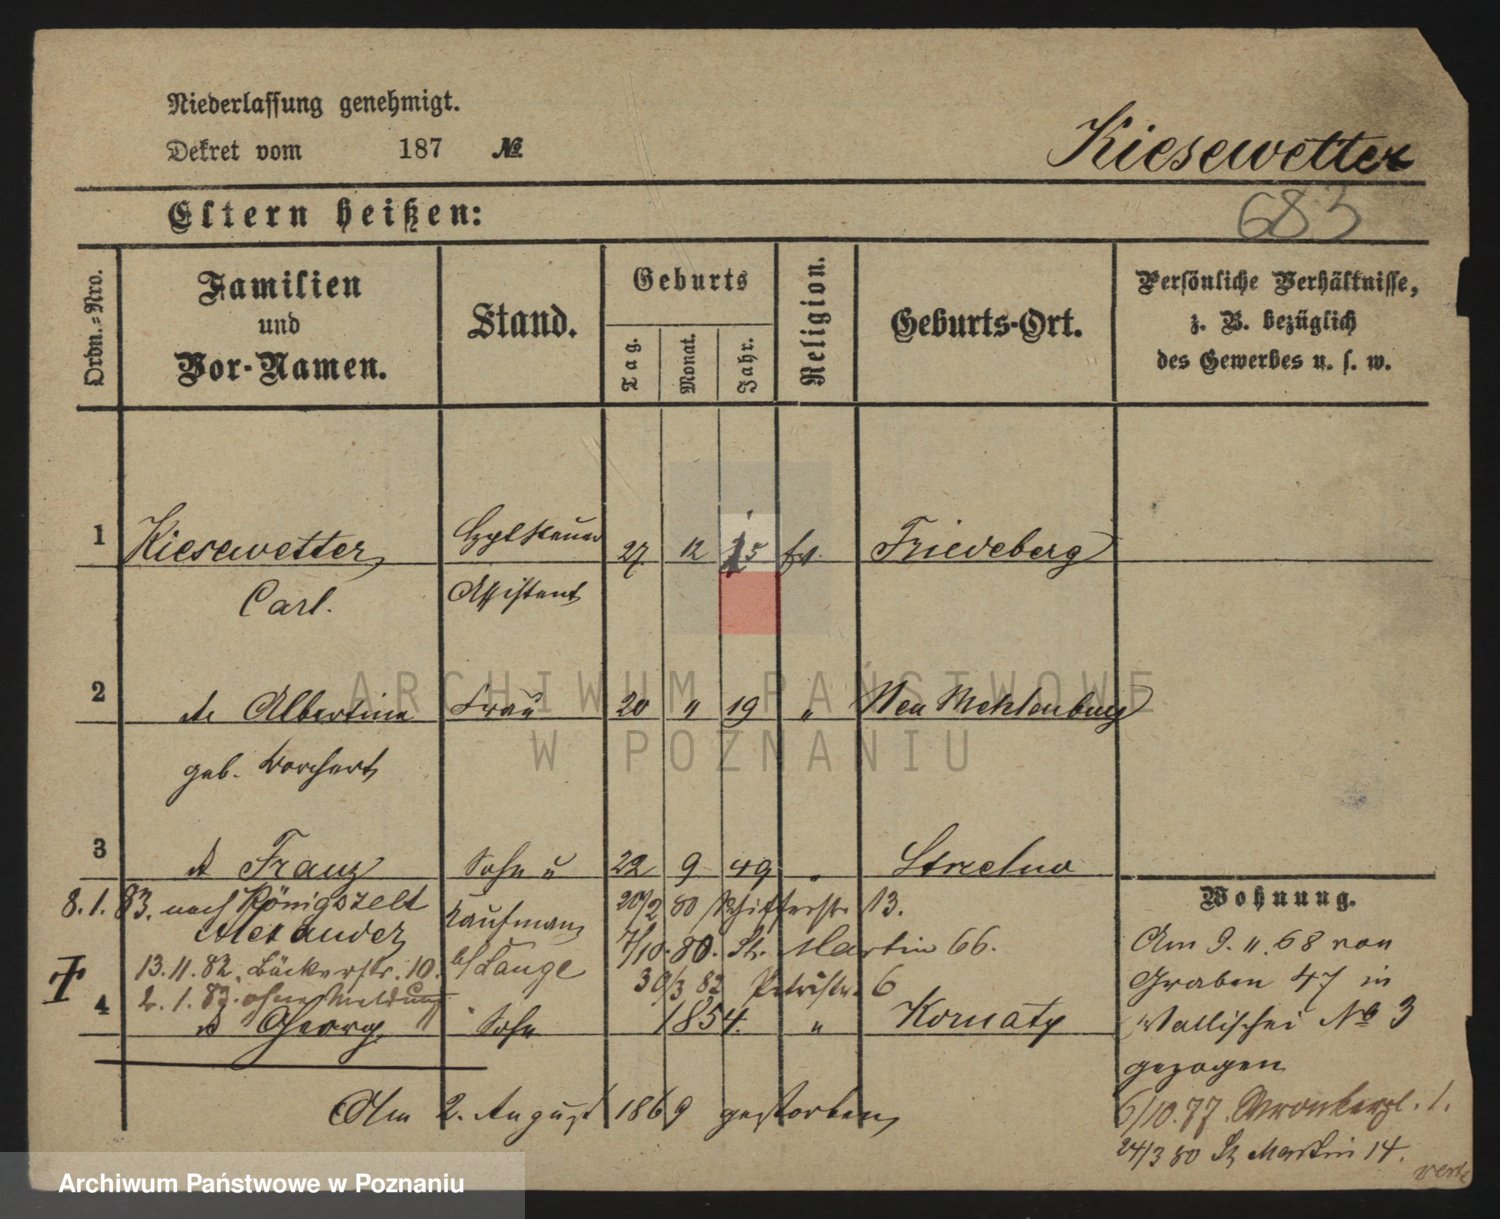 Niederlassung genehmigt.
Dekret vom 187 №
Kiesewetter
683
Eltern heißen:
Ordn.=Nro.
Familien und Vor-Namen.
Stand.
Geburts
Tag.
Monat.
Jahr.
Religion.
Geburts-Ort.
Persönliche Verhältnisse,
z. B. bezüglich
des Gewerbes u. s. w.
1 Kiesewetter 27 12 15 ev. Friedeberg
Carl. Assistent
2 Albertine Frau 20 " 19 " Neu Mecklenburg
geb. Borchert
3 Franz Sohn u 22 9 49 " Strelno
Wohnung.
8.1.83. nach Königszelt Kaufmann 20/2 80 13.
Alexander 7/10.80. St. Martin 66.
13.11.82. Bäckerstr. 10. b/Lange 30/3 82 Petristr. 6
2.1.83. ohne Meldung
4 Georg Sohn 1854. "
Am 2. August 1869 gestorben
Am 9.11.68 von
Graben 47 in
Wallischei No 3
gezogen
6/10.77. 1.
24/3 80 St Martin 14.
ARCHIWUM PAŃSTWOWE
W POZNANIU
Archiwum Państwowe w Poznaniu